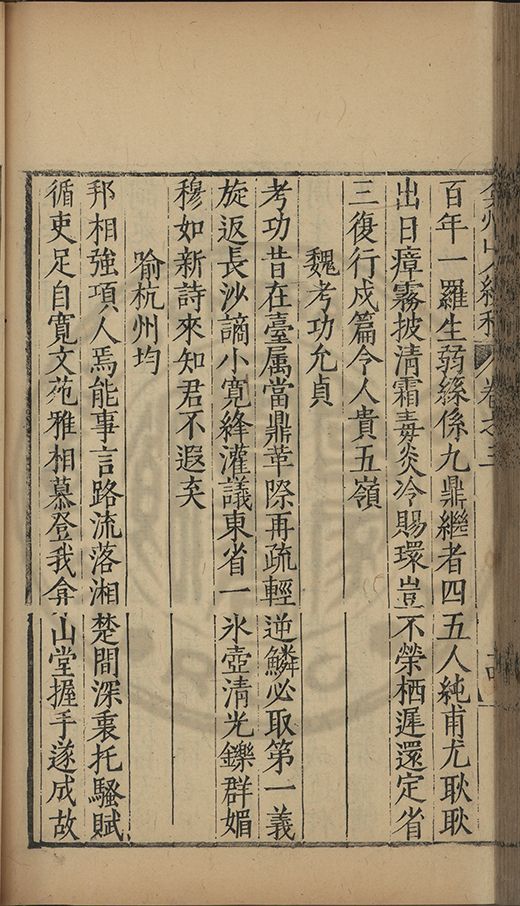 弇州山人續稿 卷之三
百年一羅生弱絲係九鼎繼者四五人純甫尤耿耿
出日瘴霧披清霜毒炎冷賜環豈不榮栖遲還定省
三復行戍篇令人貴五嶺
魏考功允貞
考功昔在臺属當鼎革際再疏輕逆鱗必取第一義
旋返長沙謫小寬絳灌議東省一氷壺清光鑠群媚
穆如新詩來知君不遐弃
喻杭州均
邦相強項人焉能事言路流落湘楚間深裏托騷賦
循吏足自寬文苑雅相慕登我弇山堂握手遂成故